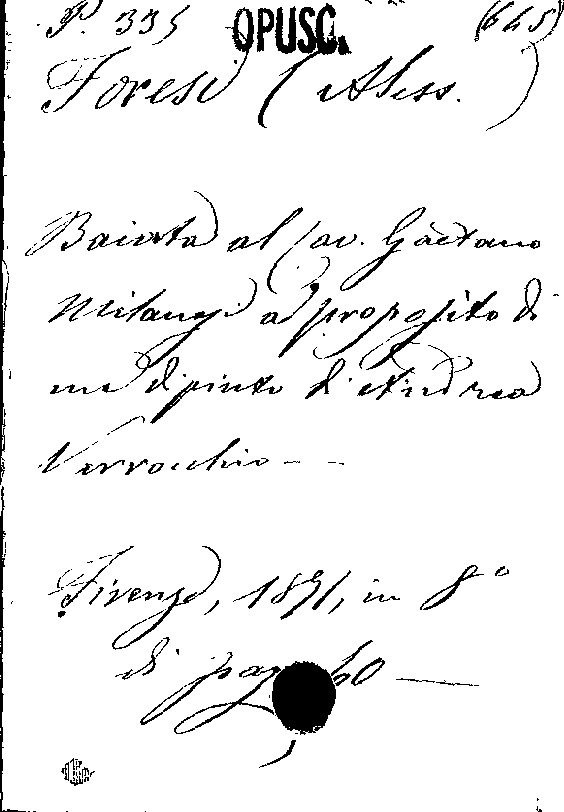 P. 335 OPUSC. (645)
Foresi (Aless.)
Baiata al Cav. Gaetano
Milanesi a proposito di
un dipinto di Andrea
Verrocchio - -
Firenze, 1871, in 8°
di pag. 40 —